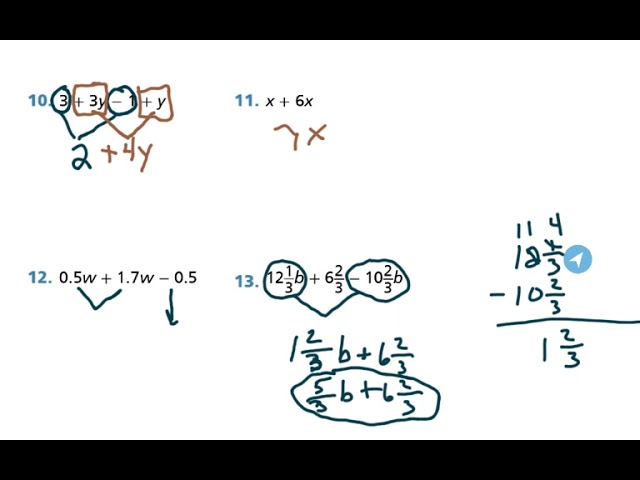 10. 3 + 3y − 1 + y
2 + 4y
11. x + 6x
7x
12. 0.5w + 1.7w − 0.5
13. 12 1/3 b + 6 2/3 − 10 2/3 b
1 2/3 b + 6 2/3
5/3 b + 6 2/3
11 4
/3
− 10 2/3
1 2/3